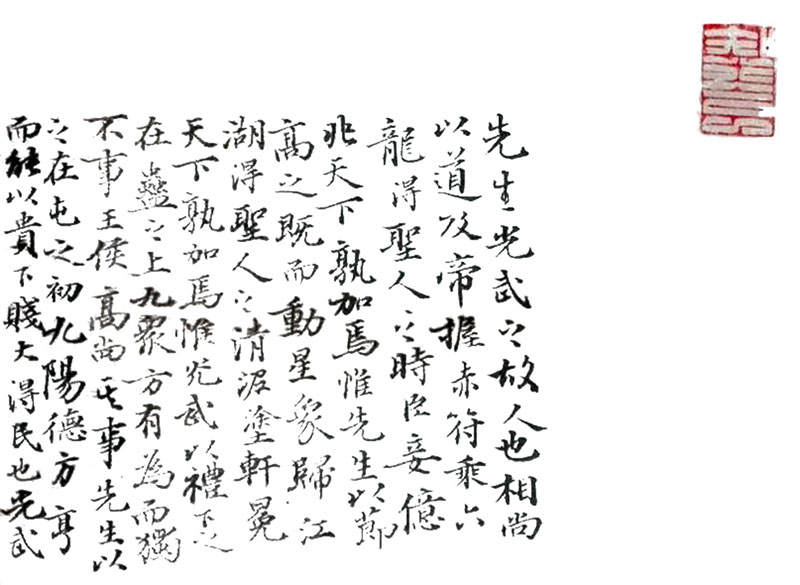 先生光武之故人也相尚
以道及帝握赤符乘六
龍得聖人之時臣妾億
兆天下孰加焉惟先生以節
高之既而動星象歸江
湖得聖人之清泥塗軒冕
天下孰加焉惟光武以禮下之
在蠱之上九眾方有為而獨
不事王侯高尚其事先生以
之在屯之初九陽德方亨
而能以貴下賤大得民也光武